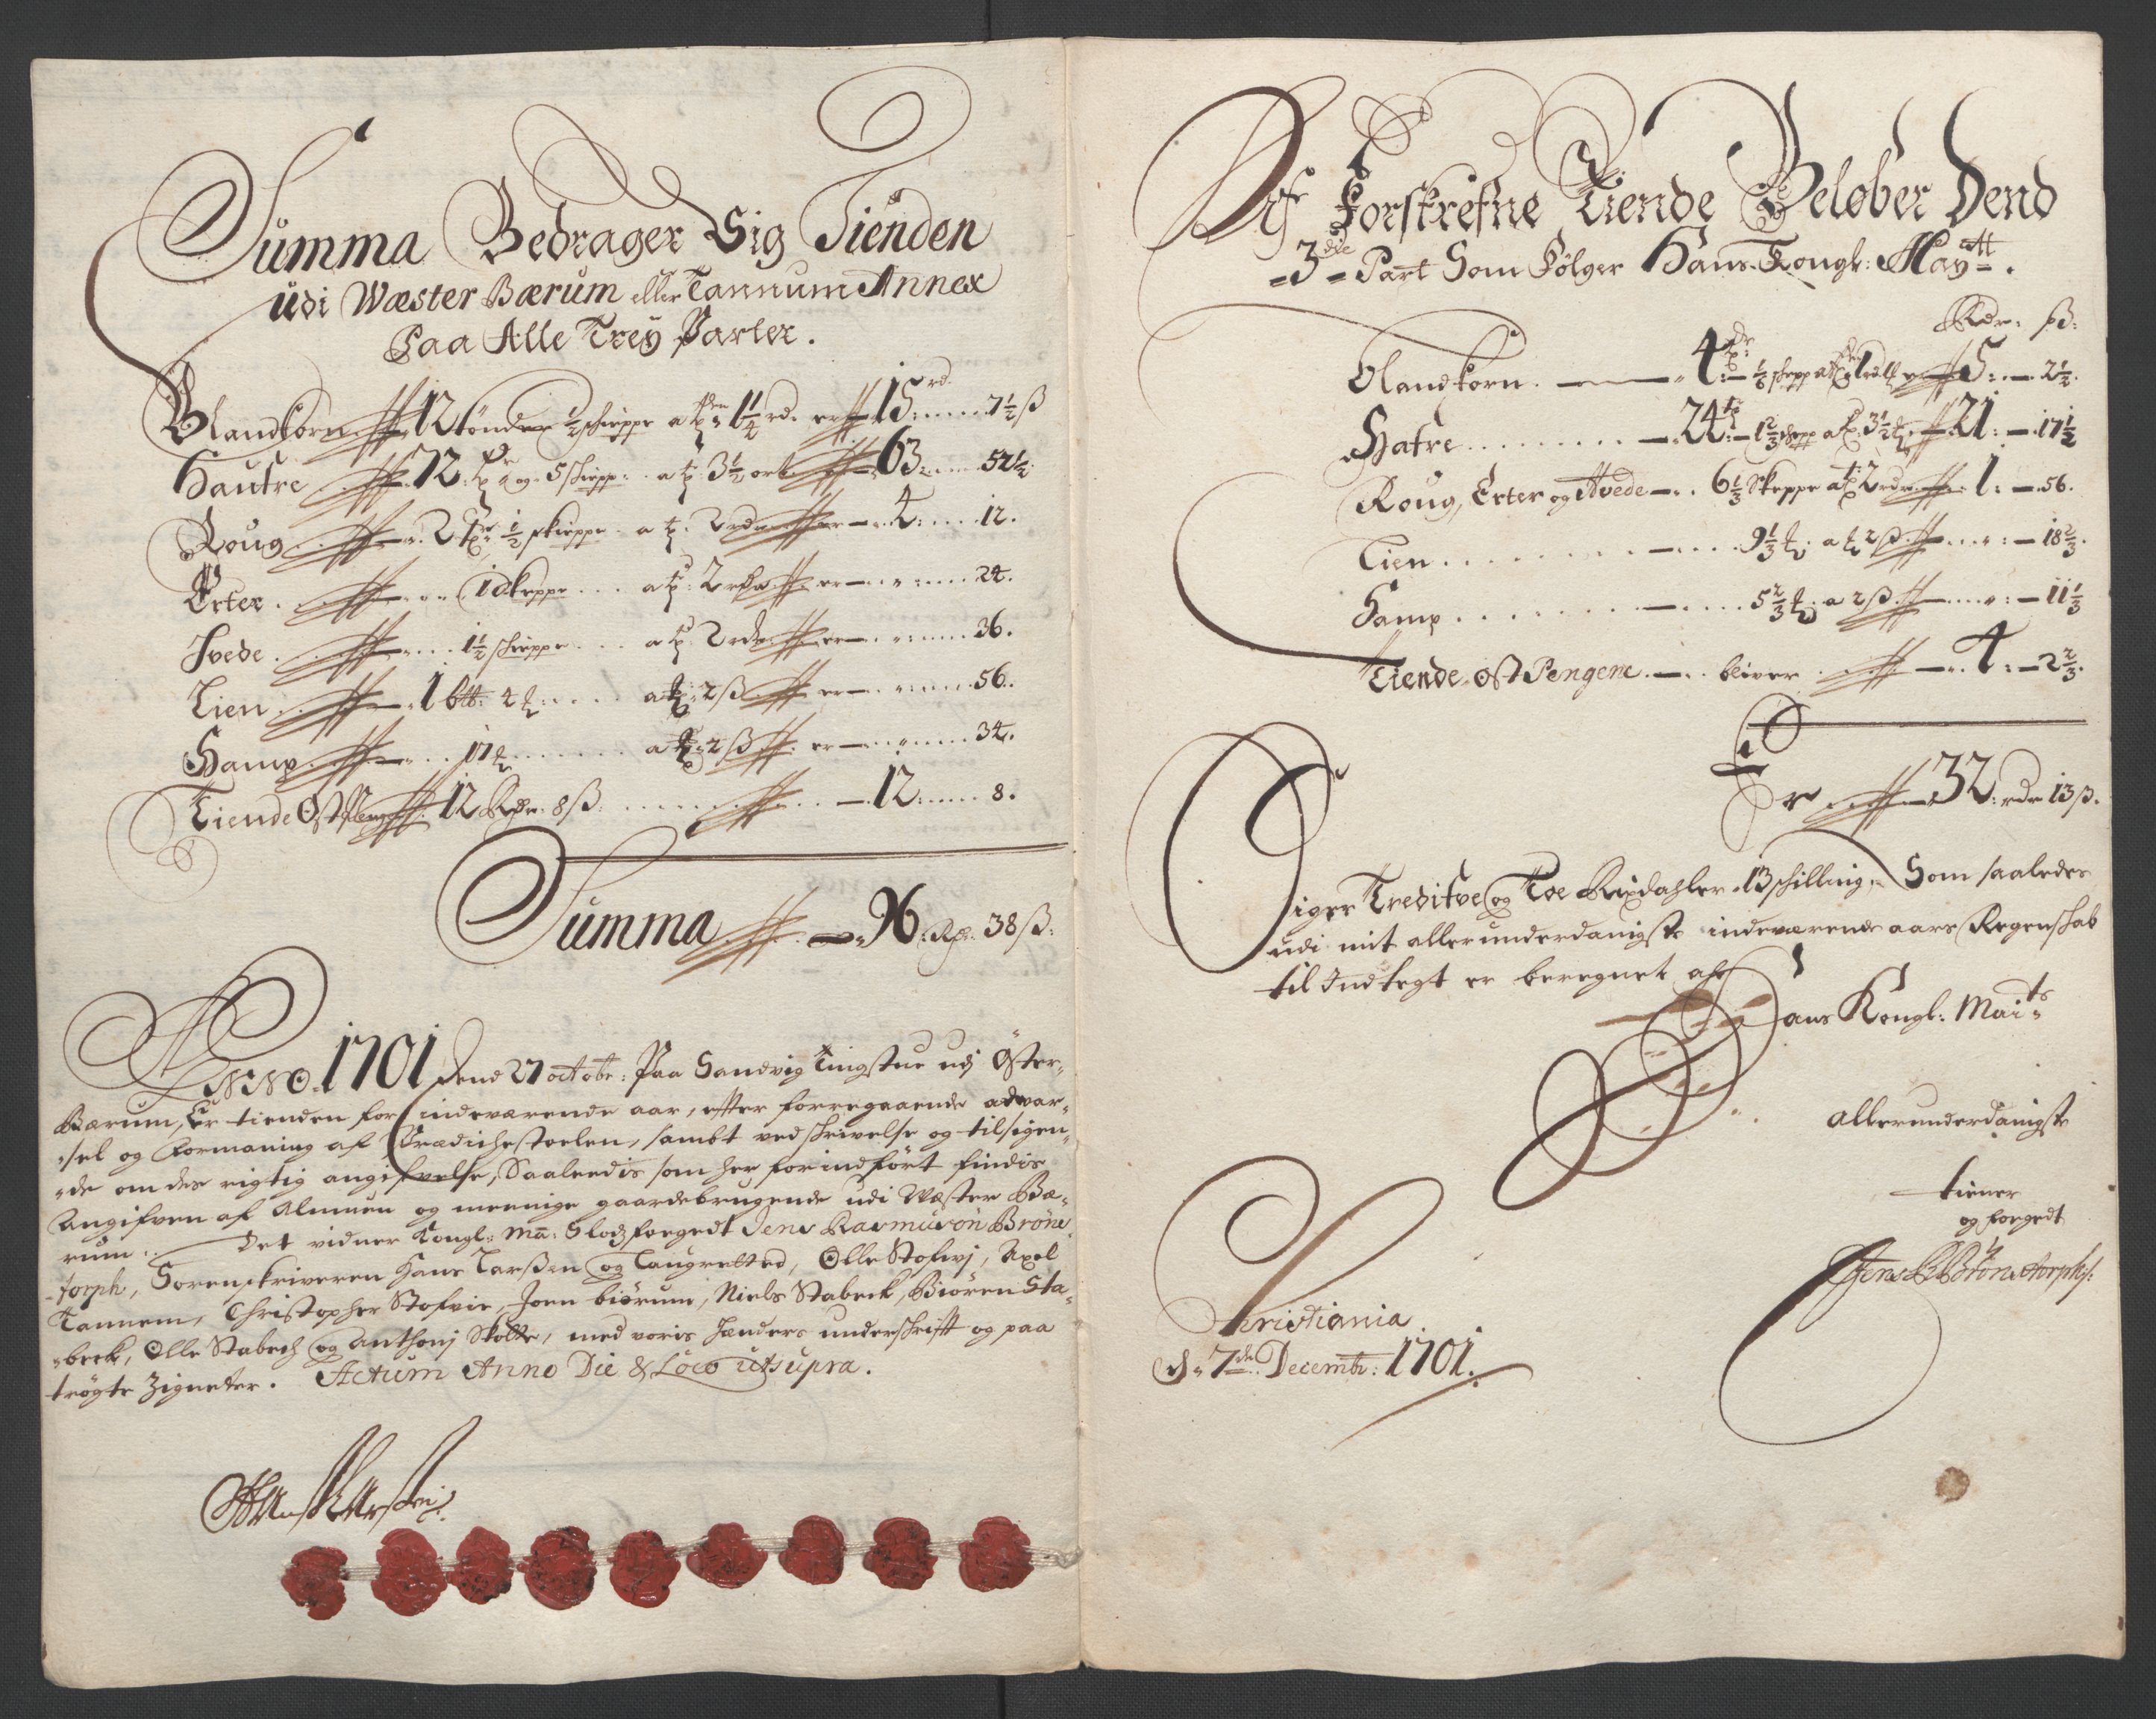 Summa Bedrager Sig Tienden
udi Wæster Bærum eller Tannum Annex
Paa Alle Trey Parter.
Blandkorn 12 tönder ½ schieppe a tde 1¼ rd. er 15 rd: 7½ ß
Haufre 72 tde og 5 schiepp: a t: 3½ ort 63: 52½
Roug 2 tde ½ skieppe a t: 2 rdr er 4: 12.
Erter 1 skeppe a t: 2 rdr er 24.
Hvede 1½ schieppe a t: 2 rdr er 36.
Lien 1 btt: 4 ℔ a ℔ 2 ß er 56.
Hamp 17 ℔ a ℔ 2 ß er 34.
Tiende Ost Peng 12 Rdr. 8 ß. 12: 8.
Summa 96 Rdr: 38 ß:
ANNO 1701 dend 27 octobr: Paa Sandvig Tingstue udj Öster-
Bærum, Er tienden for indeværende aar, efter forregaaende advar-
sel og formaning af Prædichestoelen, sambt ved schrivelse og tilsigen-
de om des rigtig angifvelse, Saaleedis som her for indfört findis
Angifven af Almuen og meenige gaardebrugende udi Wæster Bæ-
rum. Det vidner Kongl: Ma: Slodzfoegedt Jens Rasmuson Bröns-
torph, Sorenskriveren Hans Larßen og Laugretted, Olle Stofvj, Axel
Tannem, Christopher Stofvie, Joen biörum, Niels Stabeck, Biören Sta-
beck, Olle Stabech og Anthonj Skotte, med voris hænders underschrifft og paa
trögte Zigneter. Actum Anno Die & Loco utsupra.
Hans Larßen
Af Forskrefne Tiende Beløber Dend
3die Part Som Følger Hans Kongl: Maytt.
Rdr. ß:
Blandkorn 4 tde: ⅙ schepp a tde 1¼ rdlr 5: 2½.
Hafre 24 t: 1⅔ schepp a t: 3½ ℔ 21: 17½
Roug, Erter og Hvede 6⅓ Skeppe a t: 2 rdr 1: 56.
Lien 9⅓ ℔ a ℔ 2 ß 18⅔.
Hamp 5⅔ ℔ a 2 ß 11⅓
Tiende Ost Pengene bliver 4: 2⅔.
Er 32 rdr 13 ß.
Siger Treditve og Toe Rixdahler 13 schilling, Som saaledes
udi mit allerunderdanigste indeværende aars Regenschab
til Indtegt er beregnet af
Hans Kongl: Maits
allerunderdanigste
tiener
og foegedt
Jens R Brönstorph
Christiania
d. 7de Decembr: 1701.